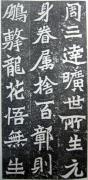 周三達曠世所生元
身眷屬捨百鄣則
鵬擊龍花悟無生